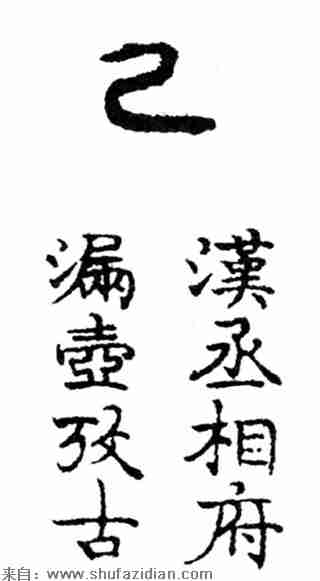 己
漢丞相府
漏壺攷古
来自：www.shufazidian.com